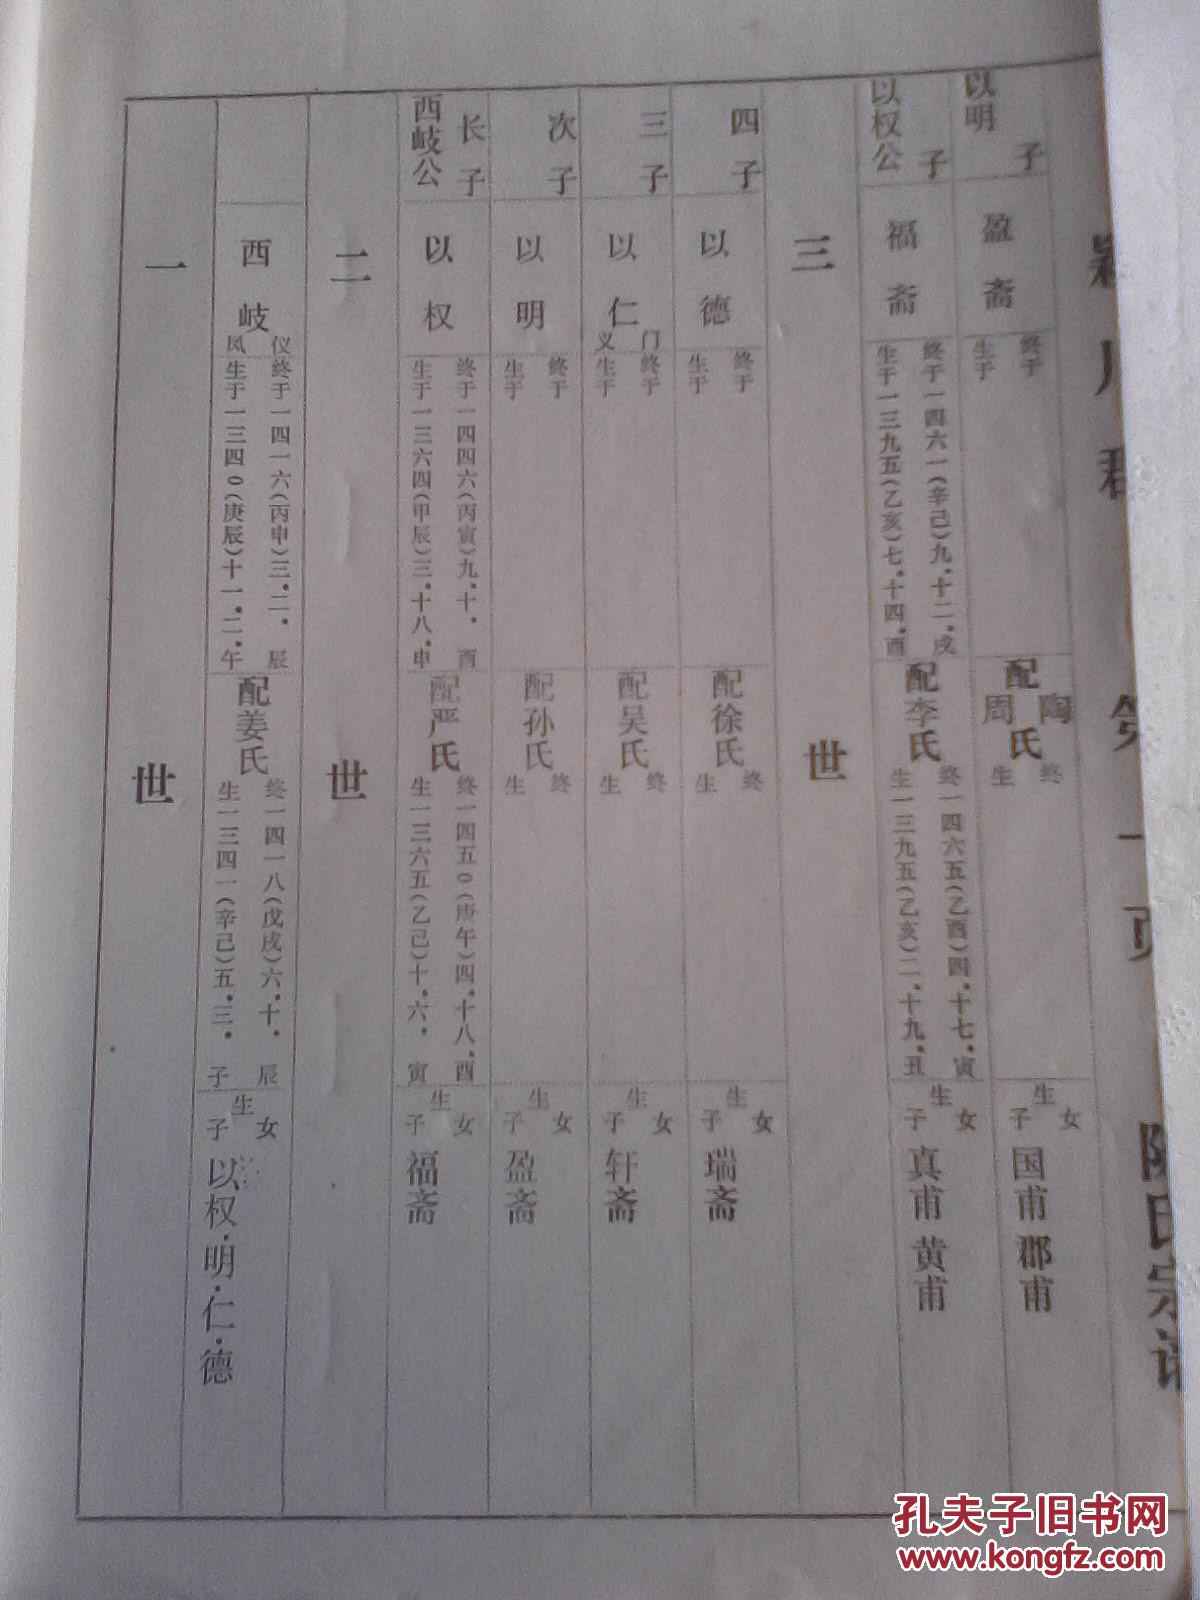 一世
西岐
凤仪
生于一三四〇(庚辰)十一.二.午
终于一四一六(丙申)三.二.辰
配姜氏
生一三四一(辛己)五.三.子
终一四一八(戊戌)六.十.辰
生子女
以权.明.仁.德
二世
西岐公长子
以权
生于一三六四(甲辰)三.十八.申
终于一四四六(丙寅)九.十.酉
配严氏
生一三六五(乙己)十.六.寅
终一四五〇(庚午)四.十八.酉
生子女
福斋
次子
以明
生于
终于
配孙氏
生
终
生子女
盈斋
三子
以仁
义门
生于
终于
配吴氏
生
终
生子女
轩斋
四子
以德
生于
终于
配徐氏
生
终
生子女
瑞斋
三世
以权公子
福斋
生于一三九五(乙亥)七.十四.酉
终于一四六一(辛己)九.十二.戌
配李氏
生一三九五(乙亥)二.十九.丑
终一四六五(乙酉)四.十七.寅
生子女
真甫 黄甫
以明子
盈斋
生于
终于
配周陶氏
生
终
生子女
国甫 郡甫
孔夫子旧书网
www.kongfz.com